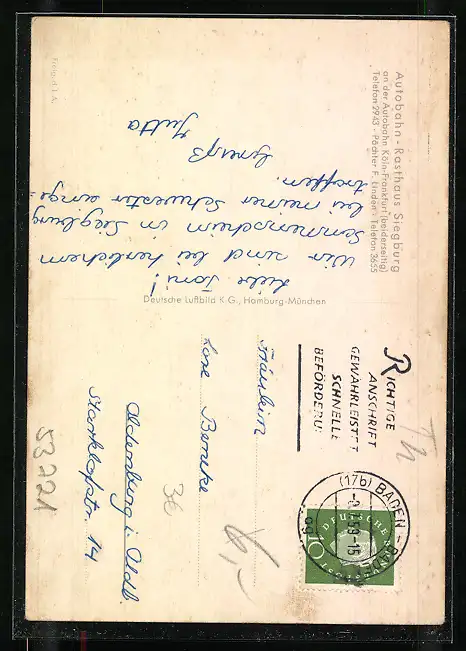 Autobahn - Rasthaus Siegburg
an der Autobahn Köln-Frankfurt (beiderseitig)
Telefon 2943 - Pächter F. Linden - Telefon 3655
Liebe Toni!
Wir sind bei herrlichem
Sonnenschein in Siegburg
bei meiner Schwester ange=
troffen.
Gruß
Jutta
Deutsche Luftbild K G., Hamburg-München
RICHTIGE
ANSCHRIFT
GEWÄHRLEISTET
SCHNELLE
BEFÖRDERU
(17b) BADEN -
59-15
DEUTSCHE BUNDESPOST
10
Fräulein
Lore
Oldenburg i. Oldb.
14
53721